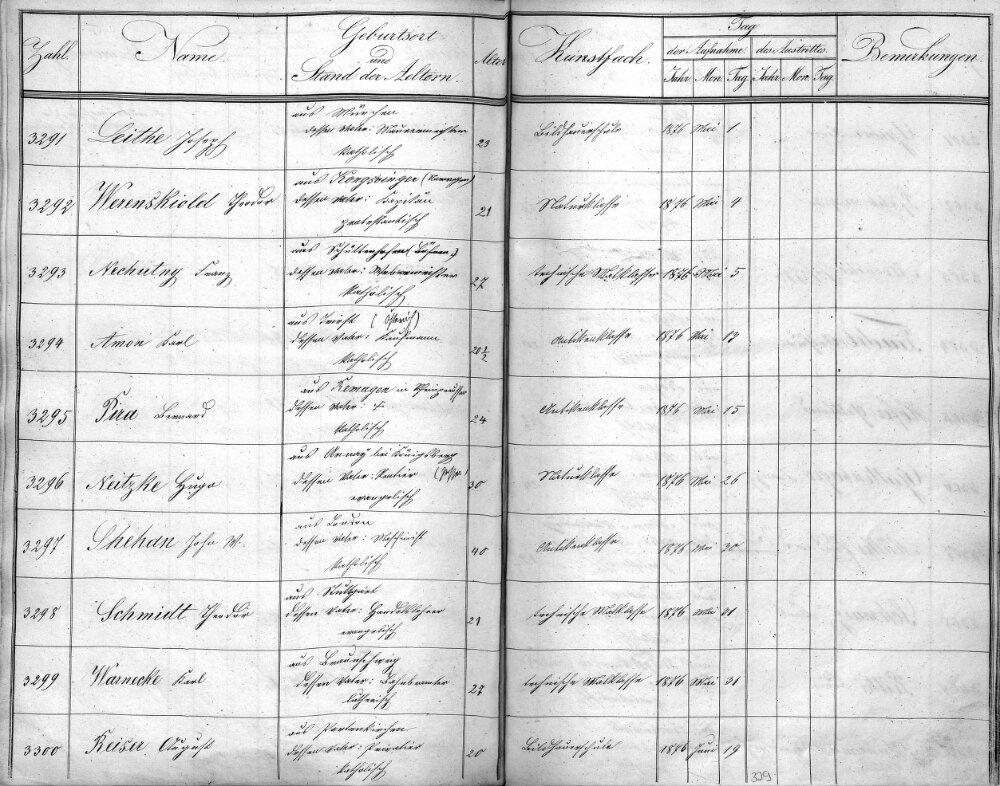 Zahl. Name. Geburtsort und Stand der Aeltern. Alter Kunstfach. Tag der Aufnahme. des Austrittes. Bemerkungen.
Jahr Mon. Tag Jahr Mon. Tag
3291 Leithe Joseph aus München 23 Bildhauerschule 1876 Mai 1
dessen Vater: Maurermeister
katholisch
3292 Werenskiold Theodor aus Kongsvinger (Norwegen) 21 Naturklasse 1876 Mai 4
dessen Vater: Kapitän
protestantisch
3293 Nechutny Franz aus Schüttenhofen (Böhmen) 27 technische Malklasse 1876 Mai 5
dessen Vater: Webermeister
katholisch
3294 Amon Karl aus Triest 20 1/2 Antikenklasse 1876 Mai 13
dessen Vater: Kaufmann
katholisch
3295 Pira Bernard aus Remagen in Rheinpreussen 24 Antikenklasse 1876 Mai 15
dessen Vater: †
katholisch
3296 Neitzke Hugo aus bei Königsberg 30 Naturklasse 1876 Mai 26
dessen Vater: Rentier
evangelisch
3297 Shehan John W. aus 40 Antikenklasse 1876 Mai 30
dessen Vater: Maschinist
katholisch
3298 Schmidt Theodor aus Stuttgart 21 technische Malklasse 1876 Mai 31
dessen Vater: Handelslehrer
evangelisch
3299 Warnecke Karl aus Braunschweig 27 technische Malklasse 1876 Mai 31
dessen Vater: Bahnbeamter
lutherisch
3300 Keiser August aus Partenkirchen 20 Bildhauerschule 1876 Juni 19
dessen Vater: Privatier
katholisch
329